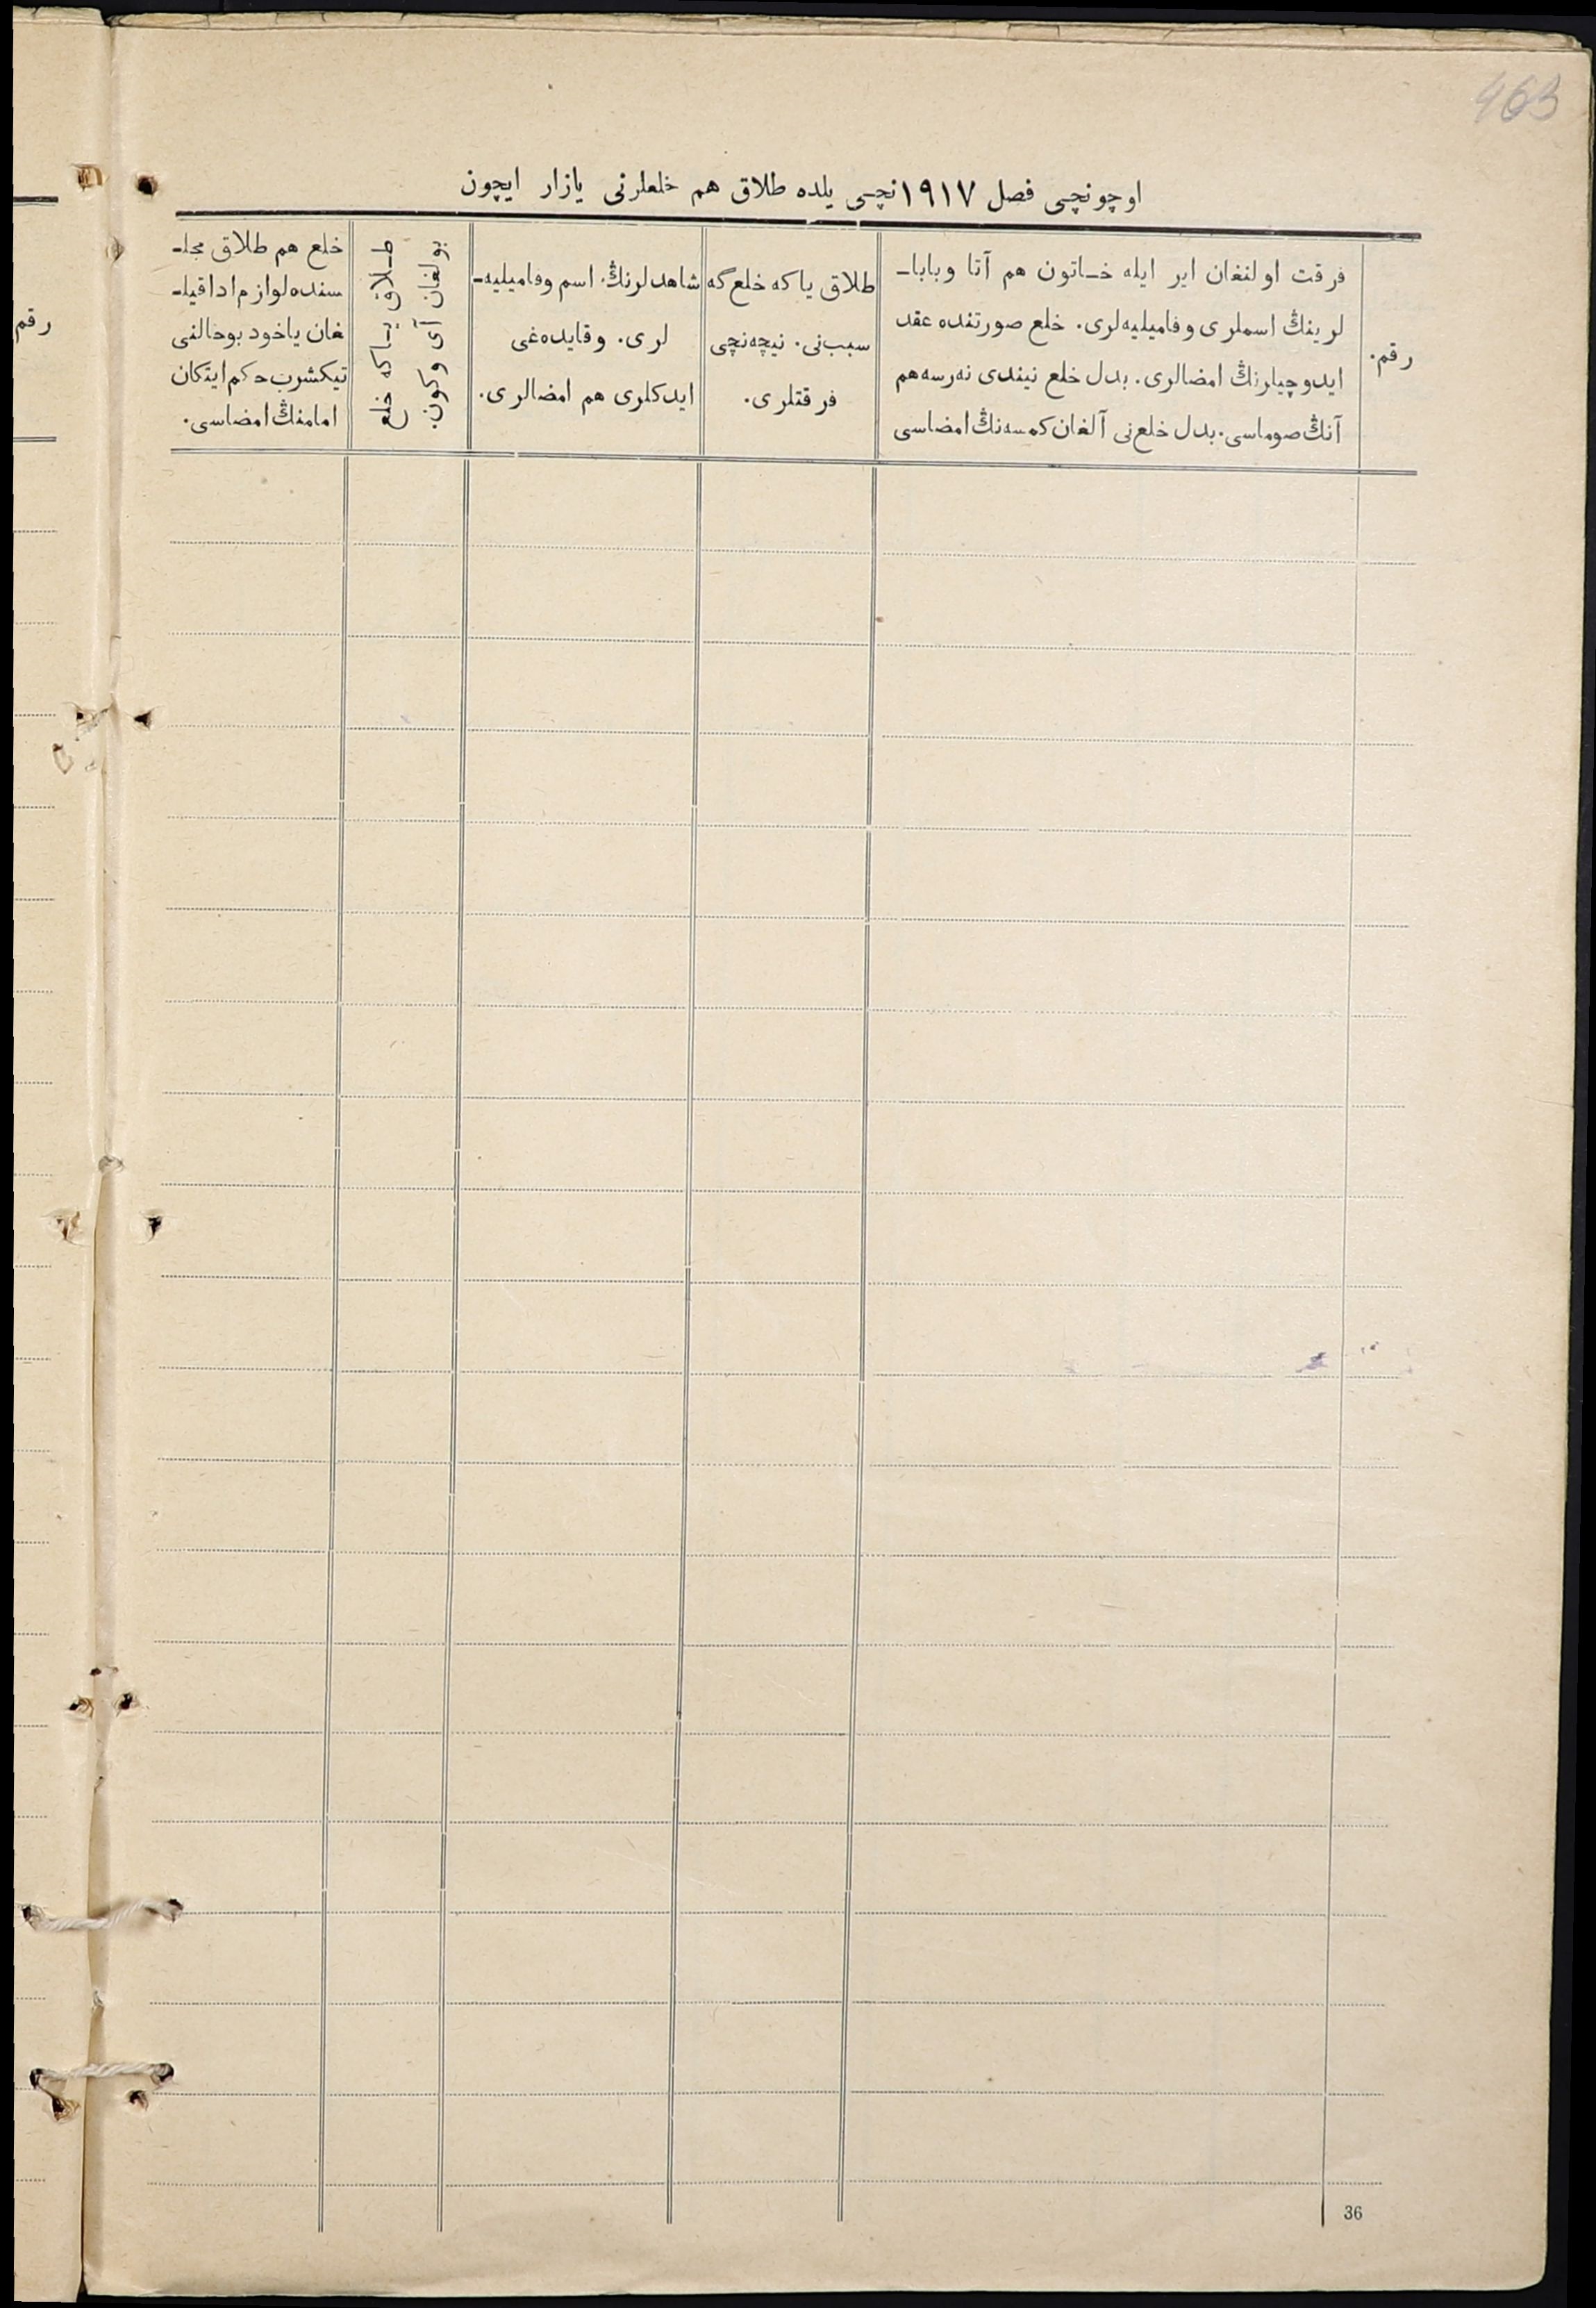 463
اوچونچی فصل ۱۹۱۷نچی یلده طلاق هم خلعلرنی یازار ایچون
رقم.
فرقت اولنغان ایر ایله خـاتون هم آتا وبابا-
لرینڭ اسملری وفامیلیه‌لری. خلع صورتنده عقد
ایدوچیلرنڭ امضالری. بدل خلع نیندی نه‌رسه هم
آنڭ صوماسی. بدل خلع‌نی آلغان کمسه‌نڭ امضاسی
طلاق یا که خلع گه
سبب‌نی. نیچه‌نچی
فرقتلری.
شاهدلرنڭ اسم وفامیلیه-
لری. وقایده‌غی
ایدکلری هم امضالری.
طـلاق یـاکه خلع
بولغان آی وکون.
خلع هم طلاق مجلـ
سنده لوازم ادا قیلـ
غان یاخود بوحالنی
تیکشرب حکم ایتکان
امامنڭ امضاسی.
رقم
36